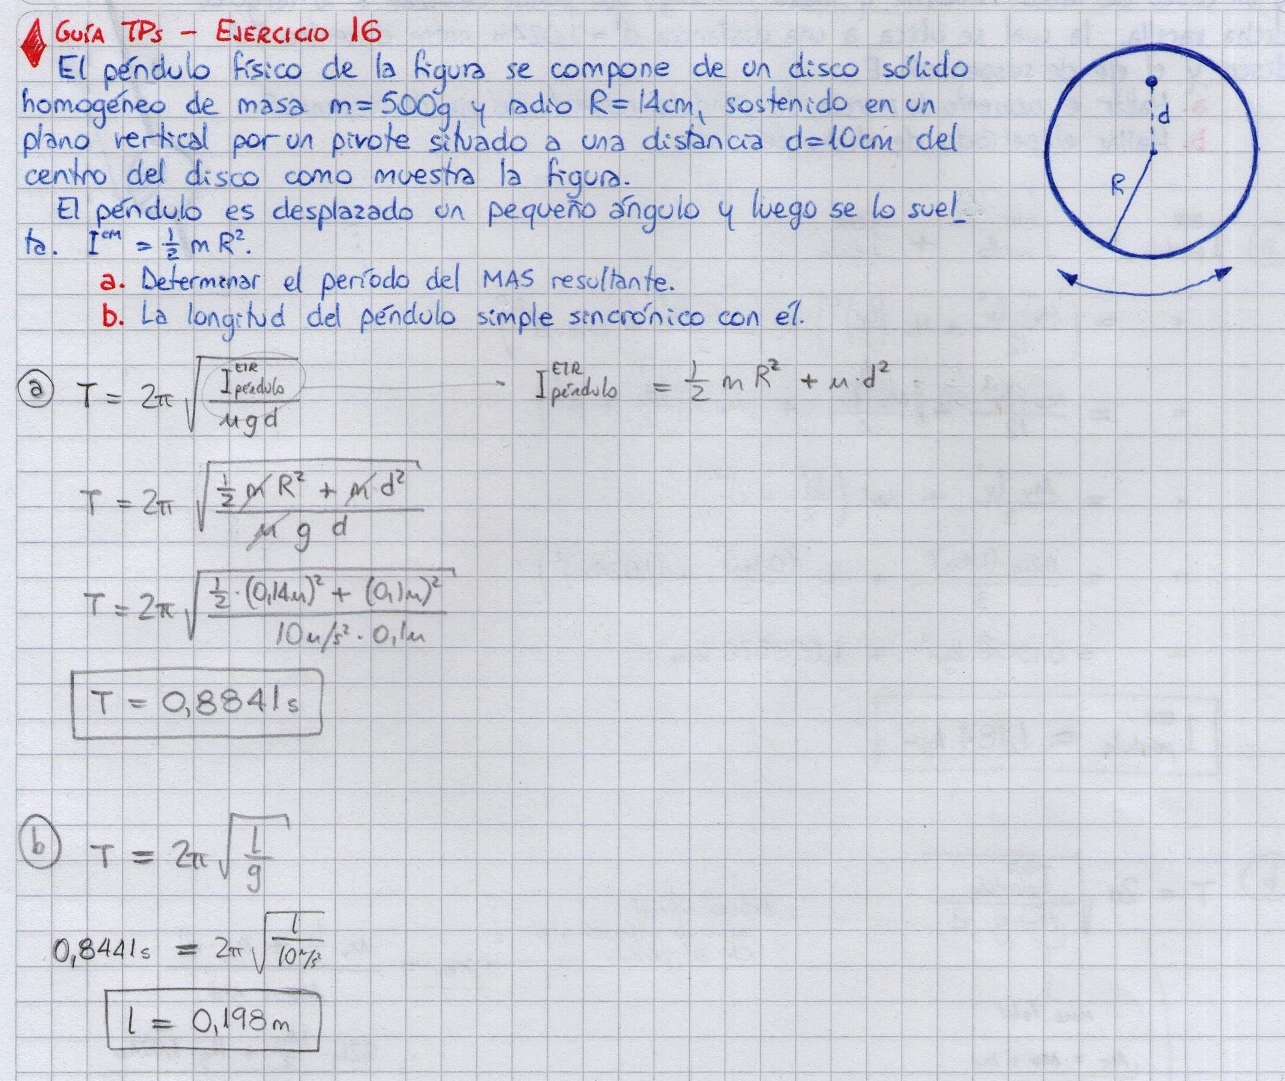 GUÍA TPs - EJERCICIO 16
El péndulo físico de la figura se compone de un disco sólido
homogéneo de masa m=500g y radio R=14cm, sostenido en un
plano vertical por un pivote situado a una distancia d=10cm del
centro del disco como muestra la figura.
El péndulo es desplazado un pequeño ángulo y luego se lo suel_
ta. I^cm = 1/2 m R².
a. Determinar el período del MAS resultante.
b. La longitud del péndulo simple sincrónico con él.
d
R
a T = 2π √(I^EIR péndulo / m g d) - I^EIR péndulo = 1/2 m R² + m·d²
T = 2π √((1/2 m R² + m d²) / (m g d))
T = 2π √((1/2 · (0,14m)² + (0,1m)²) / (10m/s² · 0,1m))
T = 0,8841s
b T = 2π √(l/g)
0,8441s = 2π √(l / 10m/s²)
l = 0,198m